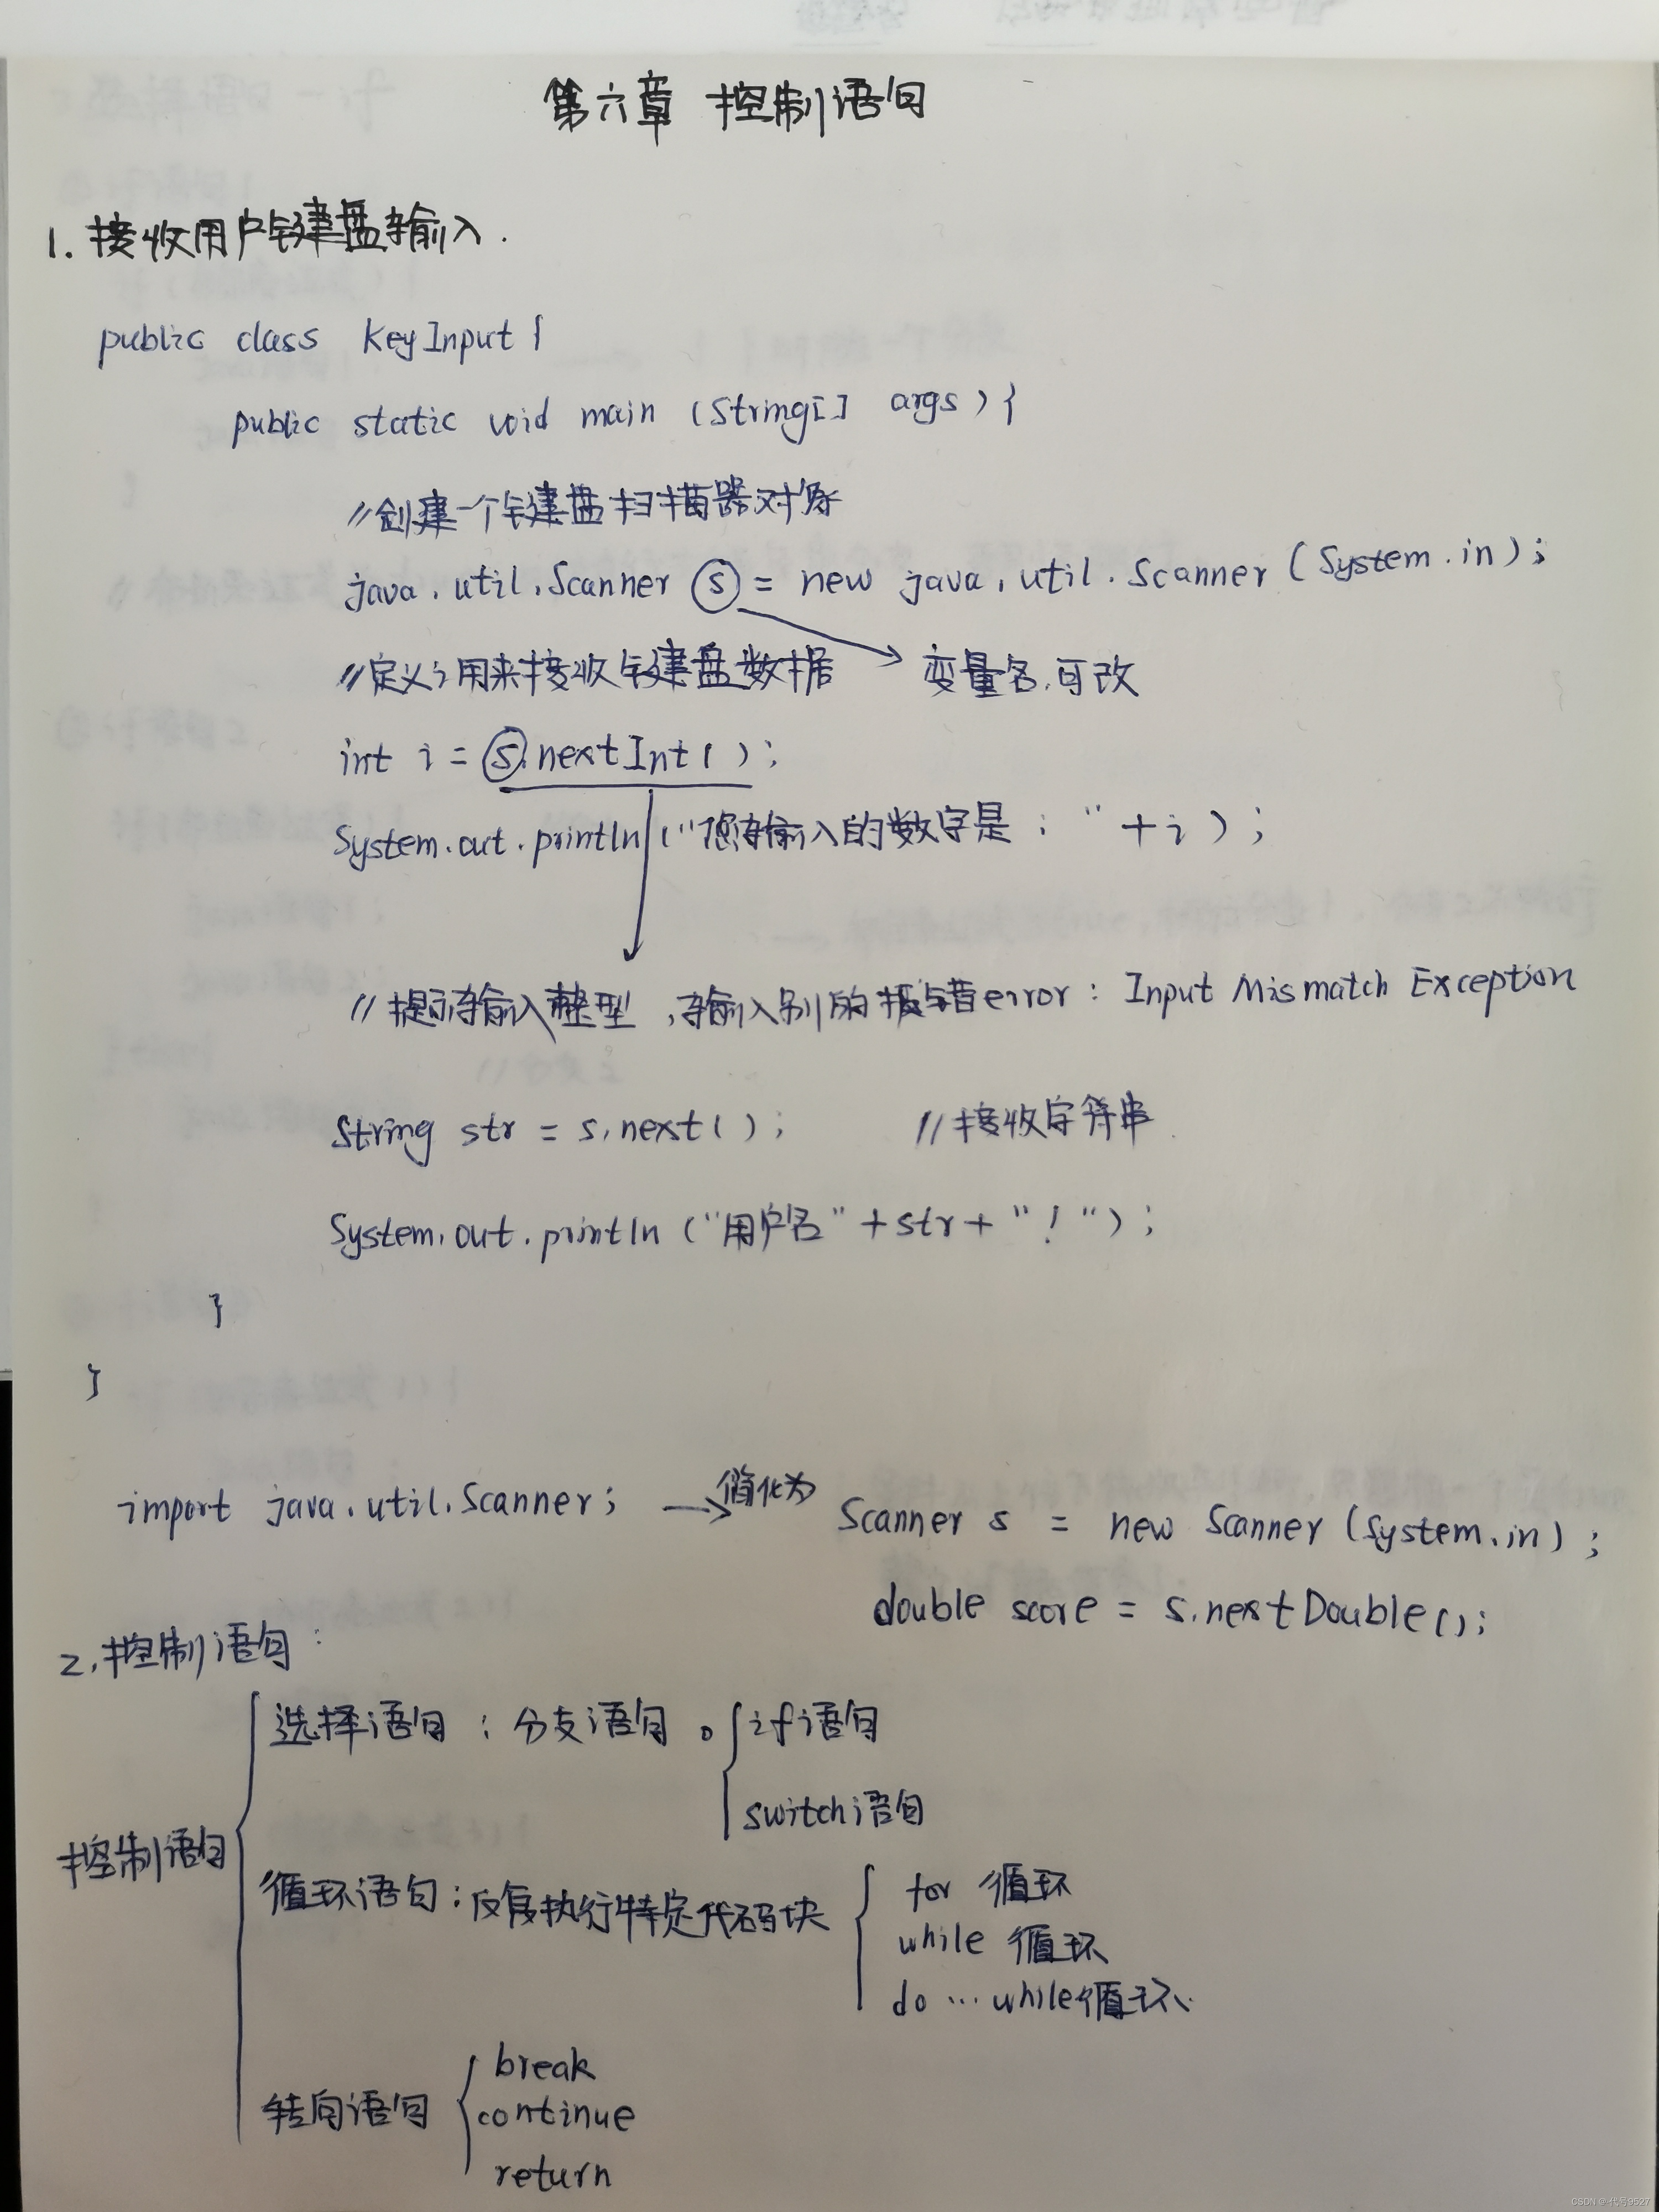 第六章 控制语句
1. 接收用户键盘输入.
public class KeyInput {
public static void main (String[] args) {
//创建一个键盘扫描器对象
java.util.Scanner s = new java.util.Scanner (System.in);
//定义i用来接收键盘数据 变量名,可改
int i = s.nextInt( );
System.out.println ("您输入的数字是: " + i );
// 提示输入整型,输入别的报错error: Input Mismatch Exception
String str = s.next( ); //接收字符串
System.out.println ("用户名" + str + " ! ");
}
}
import java.util.Scanner; → 简化为 Scanner s = new Scanner (System.in);
double score = s.nextDouble();
2.控制语句:
选择语句: 分支语句。 if语句
switch语句
控制语句
循环语句: 反复执行特定代码块
for 循环
while 循环
do … while循环、
转向语句
break
continue
return
CSDN @代号9527